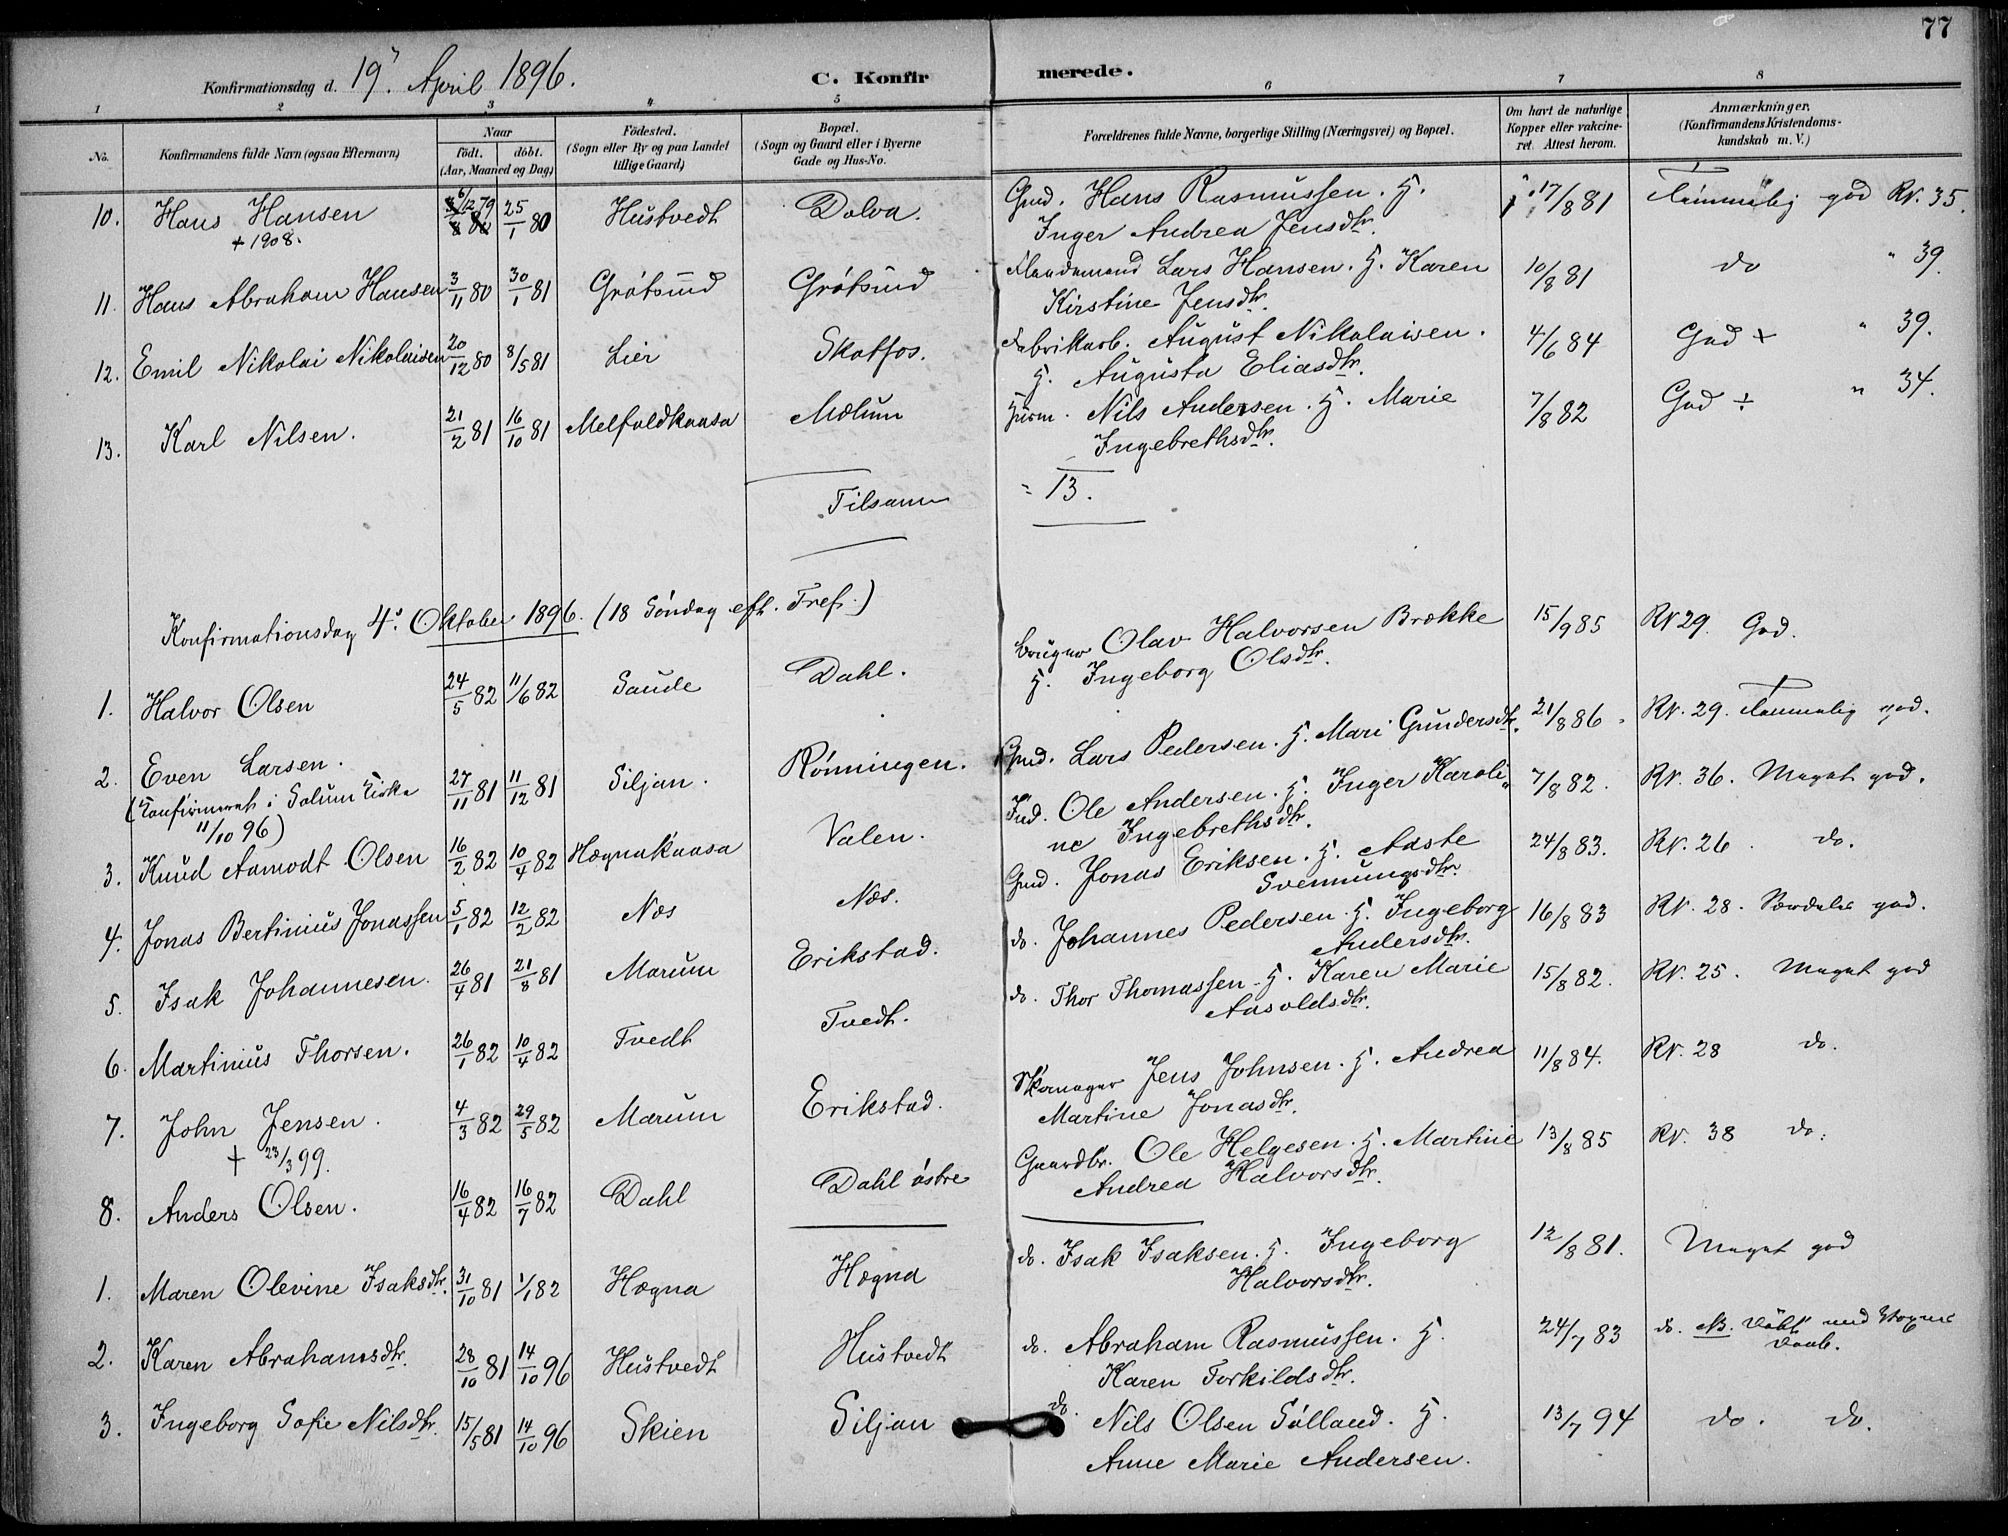 77
Konfirmationsdag d. 19' April 1896. C. Konfir merede.
1 2 3 4 5 6 7 8
No. Konfirmandens fulde Navn (ogsaa Efternavn) Naar født. døbt. (Aar, Maaned og Dag)
Fødested. (Sogn eller By og paa Landet tillige Gaard)
Bopæl. (Sogn og Gaard eller i Byerne Gade og Hus-No.
Forældrenes fulde Navne, borgerlige Stilling (Næringsvei) og Bopæl.
Om havt de naturlige Kopper eller vakcineret. Attest herom.
Anmærkninger, (Konfirmandens Kristendomskundskab m. V.)
10. Hans Hansen 6/12 79 25/1 80 Hustvedt Dolva. Gmd. Hans Rasmussen. H. 17/8 81 Temmelig god Rv. 35.
+ 1908. Inger Andrea Jensdtr.
11. Hans Abraham Hansen 3/11 80 30/1 81 Grøtsund Grøtsund Lars Hansen. H. Karen 10/8 81 do " 39.
Kirstine Jensdtr.
12. Emil Nikolai Nikolaisen 20/12 80 8/5 81 Lier Skotfos. Fabrikarb. August Nikolaisen. 4/6 84 God + " 39.
H. Augusta Eliasdtr.
13. Karl Nilsen. 21/2 81 16/10 81 Melfaldkaasa Mælum Husm. Nils Andersen. H. Marie 7/8 82 God ÷ " 34.
Ingebrethsdtr.
Tilsamm = 13.
Konfirmationsdag 4' Oktober 1896. (18 Søndag eft. Tref.)
1. Halvor Olsen 24/5 82 11/6 82 Saude Dahl. Bruger Olav Halvorsen Brække 15/9 85 Rv 29. God.
H. Ingeborg Olsdtr.
2. Even Larsen. 27/11 81 11/12 81 Siljan. Rønningen. Gmd. Lars Pedersen. H. Mari Gundersdtr. 21/8 86. Rv. 29. Temmelig god.
(Konfirmeret i Solum Kirke
11/10 96)
3. Knud Aamodt Olsen 16/2 82 10/4 82 Hægnakaasa Valen. Ind. Ole Andersen. H. Inger Karoli 7/8 82. Rv. 36. Meget god.
ne Ingebrethsdtr.
4. Jonas Bertinius Jonassen 5/1 82 12/2 82 Næs Næs. Gmd. Jonas Eriksen. H. Aaste 24/8 83. Rv. 26. do.
Svennungsdtr.
5. Isak Johannesen. 26/4 81 21/8 81 Marum Erikstad. do. Johannes Pedersen. H. Ingeborg 16/8 83 Rv. 28. Særdeles god.
Andersdtr.
6. Martinius Thorsen. 26/1 82 10/4 82 Tvedt Tvedt. do. Thor Thomassen. H. Karen Marie 15/8 82. Rv. 25. Meget god
Aasoldsdtr.
7. John Jensen. 4/3 82 29/5 82 Marum Erikstad. Skomager Jens Johnsen. H. Andrea 11/8 84. Rv. 28 do.
+ 23/3 99. Martine Jonasdtr.
8. Anders Olsen. 16/4 82 16/7 82 Dahl Dahl østre Gaardbr. Ole Helgesen. H. Martine 13/8 85 Rv. 38 do.
Andrea Halvorsdtr.
1. Maren Olevine Isaksdtr. 31/10 81 1/1 82 Hægna Hægna do. Isak Isaksen. H. Ingeborg 12/8 81. Meget god
Halvorsdtr.
2. Karen Abrahamsdtr. 28/10 81 14/10 96 Hustvedt Hustvedt do. Abraham Rasmussen. H. 24/7 83 do. NB. Døbt med Voxne
Karen Torkildsdtr. Daab.
3. Ingeborg Sofie Nilsdtr. 15/5 81 14/10 96 Skien Siljan do. Nils Olsen Sølland. H. 13/7 94 do. do.
Anne Marie Andersen.